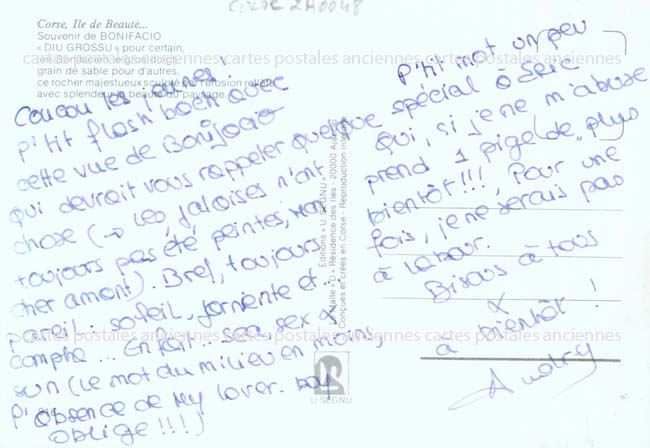 CORSE 2A0048
Corse, Ile de Beauté...
Souvenir de BONIFACIO
« DIU GROSSU » pour certain,
en Bonifacien le gros doigt,
grain de sable pour d'autres,
ce rocher majestueux sculpté par l'érosion reflète
avec splendeur la beauté du paysage.
cartes postales anciennes cartes postales anciennes cartes postales anciennes
Coucou les jaunes!
P'tit flash back avec
cette vue de Bonifacio
qui devrait vous rappeler quelque
chose (→ les falaises n'ont
toujours pas été peintes,
cher amont). Bref, toujours
pareil: soleil, farniente et
compha... En fait: sea, sex &
sun (le mot du milieu en moins,
p' absence de My lover-boy
oblige!!!)
P'tit mot un peu
spécial ô Seic
qui, si je ne m'abuse
prend 1 pige de plus
bientôt!!!, Pour une
fois, je ne serais pas
à la bour.
Bisous à tous
&
à bientôt!
Audrey
Editions « U SEGNU »
La Malte « D » Résidence des Iles - 20000 Ajaccio
Conçues et créées en Corse - Reproduction interdite
cartes postales anciennes cartes postales anciennes cartes postales anciennes
U SEGNU